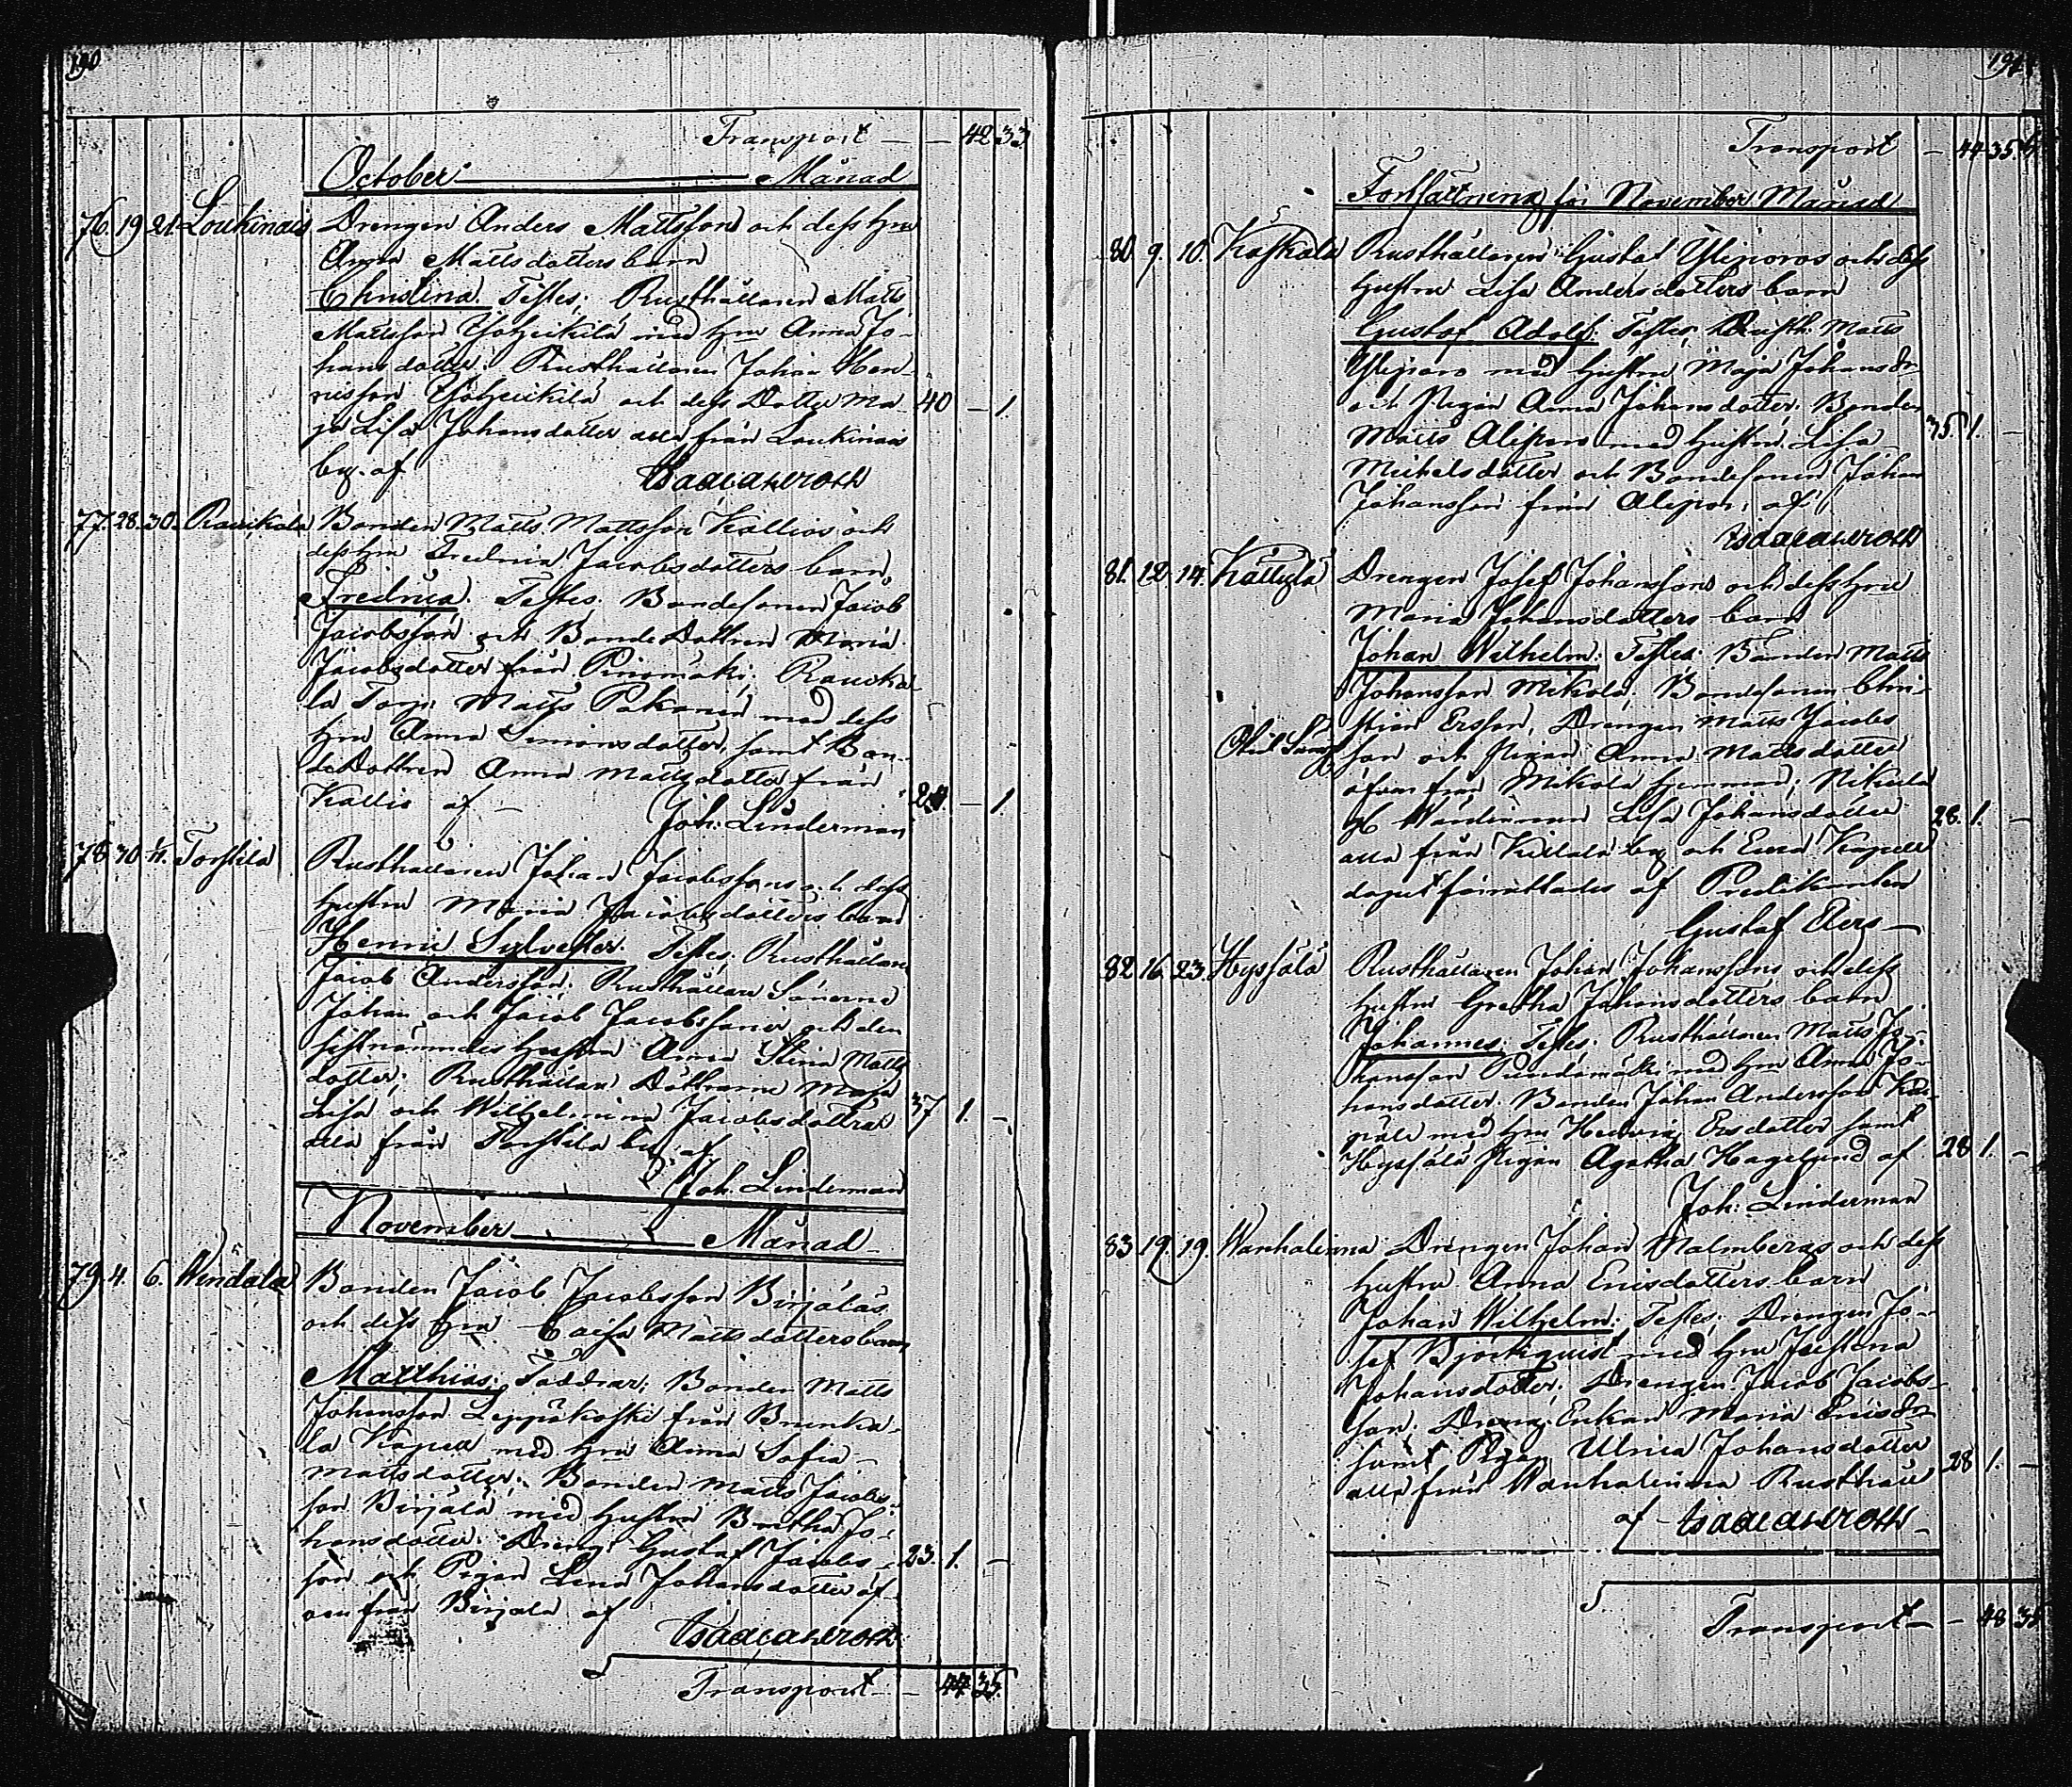 190
Transport — — 42 33
October ——— Månad
76. 19 21 Loukinais Drengen Anders Mattsson och dess Hru
Anna Mattsdotters barn
Christina. Testes: Rusthållaren Matts
Mattsson med Hru Anna Jo-
hansdotter. Rusthållaren Johan Hen-
ricsson och dess Dotter Ma- 40 — 1.
ja Lisa Johansdotter alla från Loukinais
by. af
77. 28. 30. Bonden Matts Mattsson Kallios och
dess Hru Fredrica Jacobsdotters barn
Fredrica. Testes: Bondesonen Jacob
Jacobsson och BondeDottren Maria
Jacobsdotter från Pinomäki;
la Torp. Matts Pakanen med dess
Hru Anna Simonsdotter, samt Bon-
deDottren Anna Mattsdotter från
Kallio af — Joh: Linderman — 1.
78 30 Torstila Rusthållaren Johan Jacobssons och dess
Hustru Maria Jacobsdotters barn
Henric Sylvester. Testes: Rusthållaren
Jacob Andersson. Rusthållare Sönerne
Johan och Jacob Jacobssöner och den
sistnämndes Hustru Anna Stina Matts
dotter; Rusthållare Döttrarne Maja
Lisa och Wilhelmina Jacobsdöttrar 37 1. —
alla från Torstila by. af
Joh. Linderman
November ——— Månad
79. 4. 6. Bonden Jacob Jacobsson Birjälas
och dess Hru Caisa Mattsdotters barn
Matthias; Faddrar; Bonden Matts
Johansson Leppäkoski från Brunka-
la Kapell med Hru Anna Sofia
Mattsdotter; Bonden Matts Jacobs-
son Birjälä med Hustru Bretha Jo-
hansdotter. Dreng. Gustaf Jacobs- 23. 1. —
son och Pigan Lena Johansdotter äf-
ven från Birjala af
Transport — — 44 35.
191
Transport — 44 35.
Fortsättning för November Månad
80. 9. 10. Kaskala Rusthållaren Gustaf Yliporos och dess
Hustru Lisa Andersdotters barn
Gustaf Adolf. Testes: Rusth. Matts
Yliporo med Hustru Maja Johansdr
och Pigan Anna Johansdotter. Bonden
Matts Aliporo med Hustru Lisa 35. 1.
Michelsdotter och Bondesonen Johan
Johansson från Alipor, af
81. 12. 14. Kättylä Drengen Josef Johanssons och dess Hru
Maria Johansdotters barn
Johan Wilhelm. Testes: Bonden Matts
Johansson Mikola. Bondesonen Chri-
stian Ersson, Drengen Matts Jacobs
son och Pigan Anna Mattsdotter
äfven från Mikola Hemman;
Lisa Johansdotter 28. 1. —
alla från by och Eura Kapell
dopet förrättades af Predikanten
Gustaf
82 16. 23. Hyssälä Rusthållaren Johan Johanssons och dess
Hustru Gretha Johansdotters barn
Johannes; Testes: Rusthållaren Matts Jo-
hansson med Hru Anna Jo-
hansdotter. Bonden Johan Andersson
med Hru Hedvig Ersdotter samt
Hyssälä Pigan Agatha Hagelund af 28 1. —
Joh: Linderman
83. 19. 19. Wanhalinna Drengen Johan Malmbergs och dess
Hustru Anna Ericsdotters barn
Johan Wilhelm; Testes: Drengen Jo-
sef Björkquist med Hru Justina
Johansdotter; Drengen Jacob Jacobs-
son. Dreng. Enkan Maria Ericsdr
samt Pigan Ulrica Johansdotter
alla från Wanhalinna Rusthåll 28 1. —
af
Transport — — 48 35